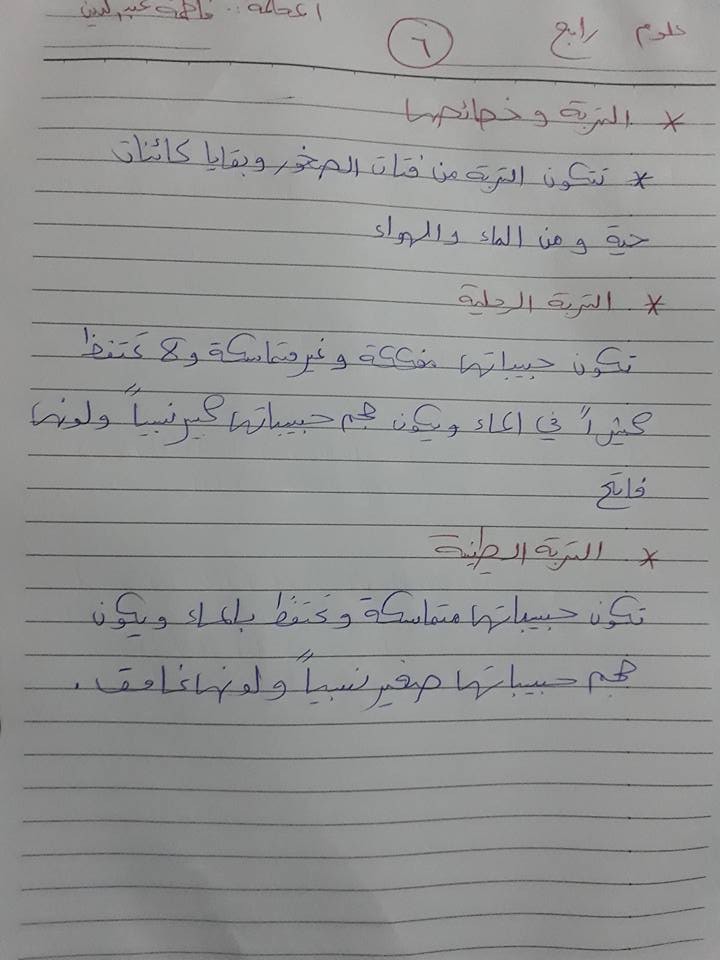 علوم رابع ٦ المعلمة : فاطمة
* التربة وخصائصها
* تتكون التربة من فتات الصخور وبقايا كائنات
حية ومن الماء والهواء
* التربة الرملية
تكون حبيباتها مفككة وغير متماسكة ولا تحتفظ
كثيراً في الماء ويكون حجم حبيباتها كبير نسبياً ولونها
فاتح
* التربة الطينية
تكون حبيباتها متماسكة وتحتفظ بالماء ويكون
حجم حبيباتها صغير نسبياً ولونها غامق .